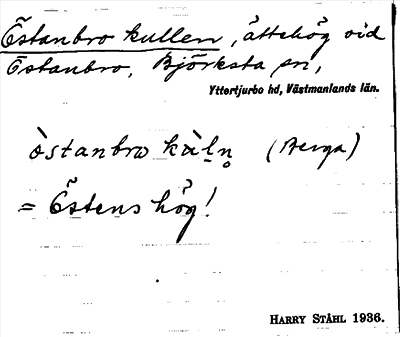 Östanbro kullen, ättehög vid
Östanbro, Björksta sn,
Yttertjurbo hd, Västmanlands län.
òstanbrω kàl̠n̥ (Berga)
= Östens hög!
HARRY STÅHL 1936.